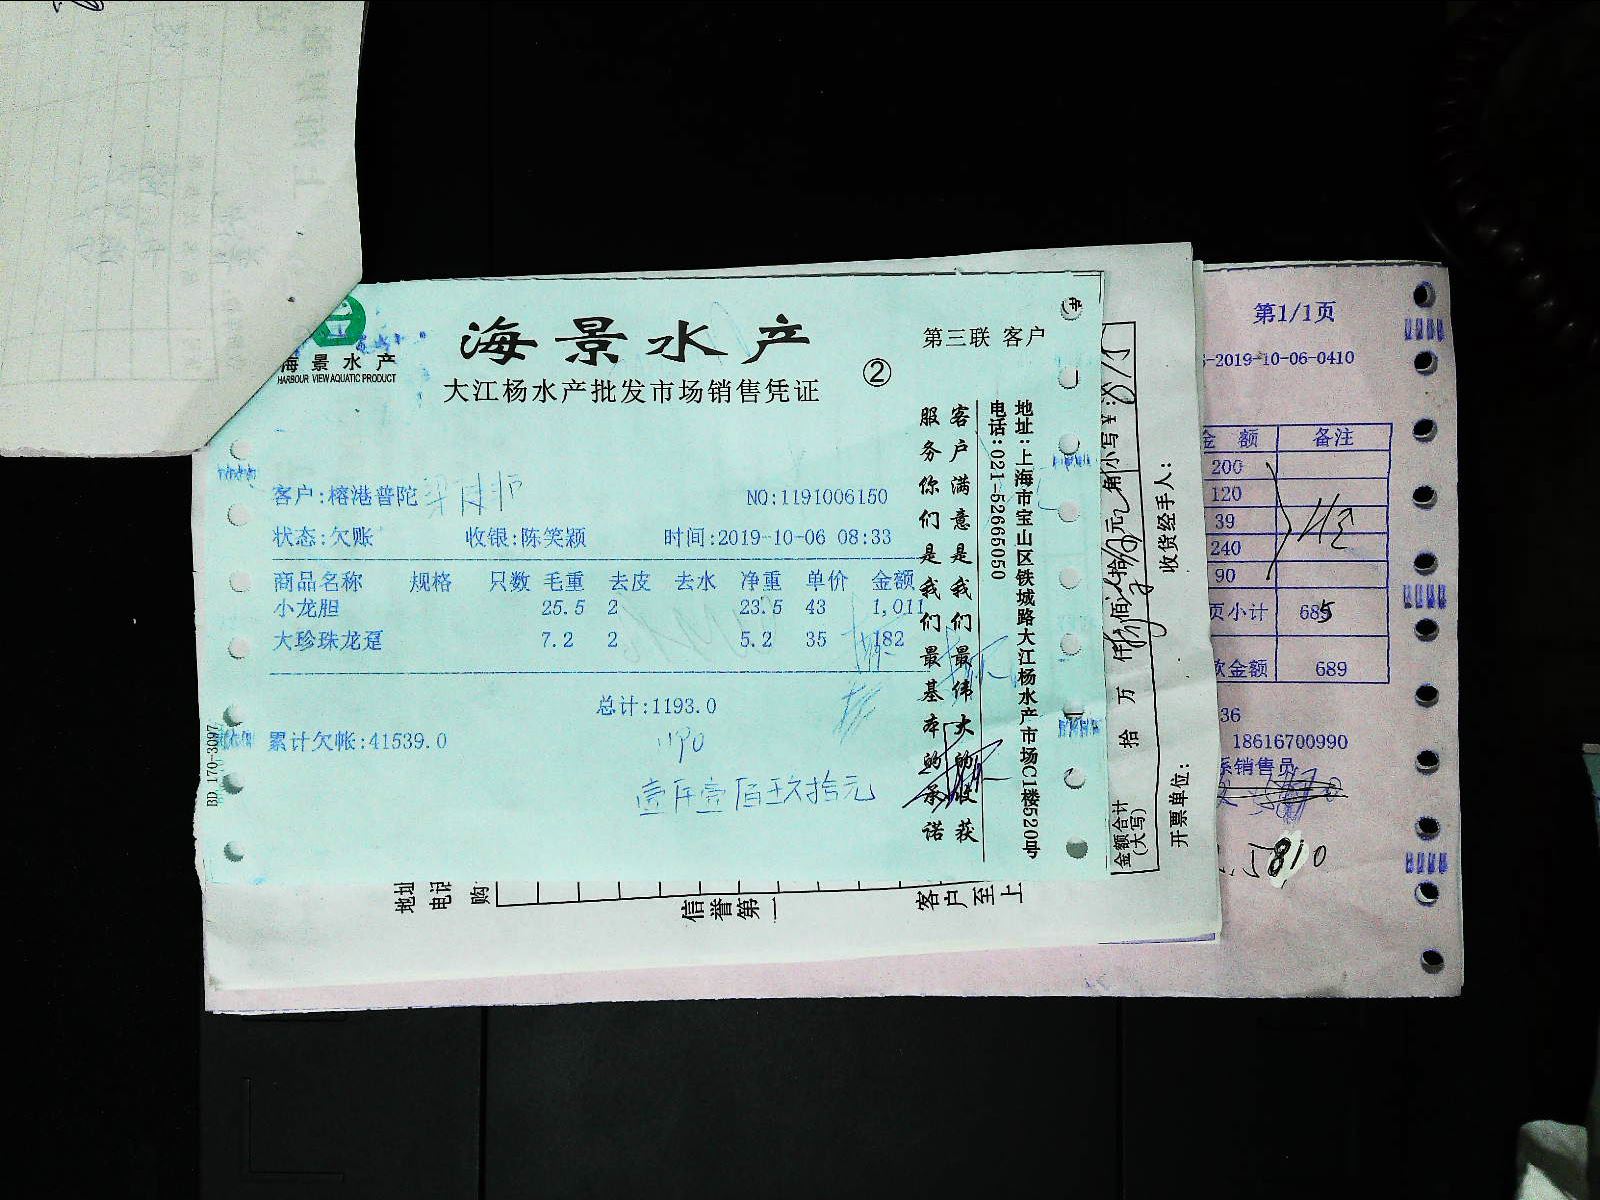 海景水产
HARBOUR VIEW AQUATIC PRODUCT
海景水产
大江杨水产批发市场销售凭证
②
第三联 客户
客户:榕港普陀
NO:1191006150
状态:欠账 收银:陈笑颖 时间:2019-10-06 08:33
商品名称 规格 只数 毛重 去皮 去水 净重 单价 金额
小龙胆 25.5 2 23.5 43 1,011
大珍珠龙趸 7.2 2 5.2 35 182
总计:1193.0
累计欠帐:41539.0
1190
壹仟壹佰玖拾元
BD 170-3097
客户满意是我们最伟大的收获
服务你们是我们最基本的承诺
地址:上海市宝山区铁城路大江杨水产市场C1楼520号
电话:021-52665050
金额合计
(大写)
拾 万 仟 佰 拾 元 角 小写¥:
开票单位: 收货经手人:
地址
电话
购
信誉第一
客户至上
第1/1页
-2019-10-06-0410
金 额 备注
200
120
39
240
90
页小计 685
款金额 689
36
18616700990
系销售员